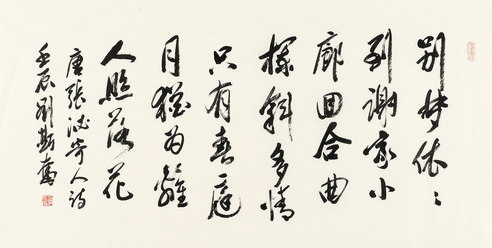 別夢依〻
到謝家小
廊回合曲
欄斜多情
只有春庭
月猶为離
人照落花
唐張泌寄人詩
壬辰劉斯奮